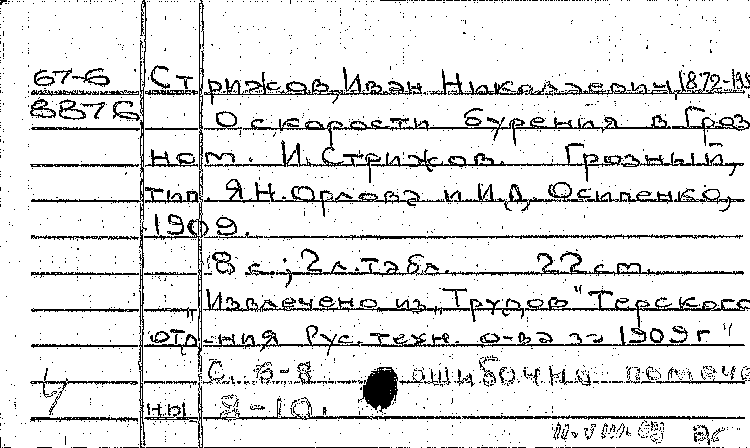 67-6 Стрижов, Иван Николаевич, (1872-195
8876 О скорости бурения в Гроз
ном. И. Стрижов. Грозный,
тип. Я.Н. Орлова и И.Д. Осипенко,
1909.
8 с.; 2 л. табл. 22 cm.
„Извлечено из „Трудов" Терского
отд-ния Рус. техн. о-ва за 1909 г"
С. 6-8 ошибочно помече
ны 8-10.
4